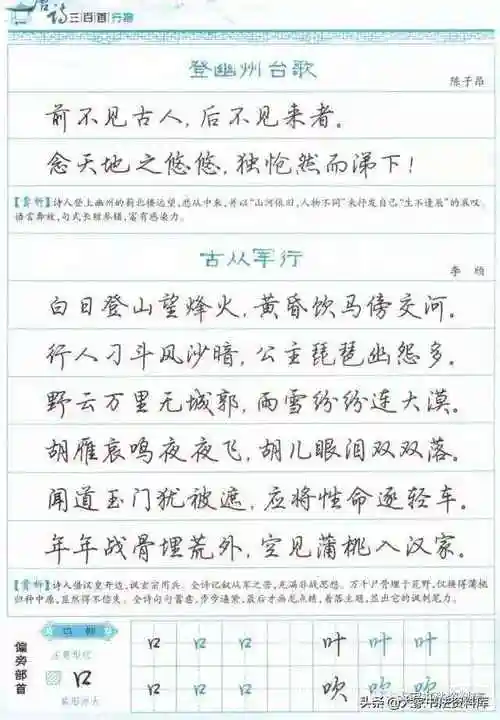 唐诗三百首 行楷
登幽州台歌
陈子昂
前不见古人,后不见来者。
念天地之悠悠,独怆然而涕下!
【赏析】诗人登上幽州的蓟北楼远望,悲从中来,并以“山河依旧,人物不同”来抒发自己“生不逢辰”的哀叹。
语言奔放,句式长短参错,富有感染力。
古从军行
李颀
白日登山望烽火,黄昏饮马傍交河。
行人刁斗风沙暗,公主琵琶幽怨多。
野云万里无城郭,雨雪纷纷连大漠。
胡雁哀鸣夜夜飞,胡儿眼泪双双落。
闻道玉门犹被遮,应将性命逐轻车。
年年战骨埋荒外,空见蒲桃入汉家。
【赏析】诗人借汉皇开边,讽玄宗用兵。全诗记叙从军之苦,充满非战思想。万千尸骨埋于荒野,仅换得蒲桃
归种中原,显然得不偿失。全诗句句蓄意,步步逼紧,最后才画龙点睛,着落主题,显出它的讽刺笔力。
偏旁部首
口
口 口 口 叶 叶 叶
口 口 口 吹 吹 吹
头条@大家书法资料库